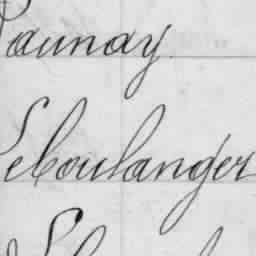 Launay
Leboulanger